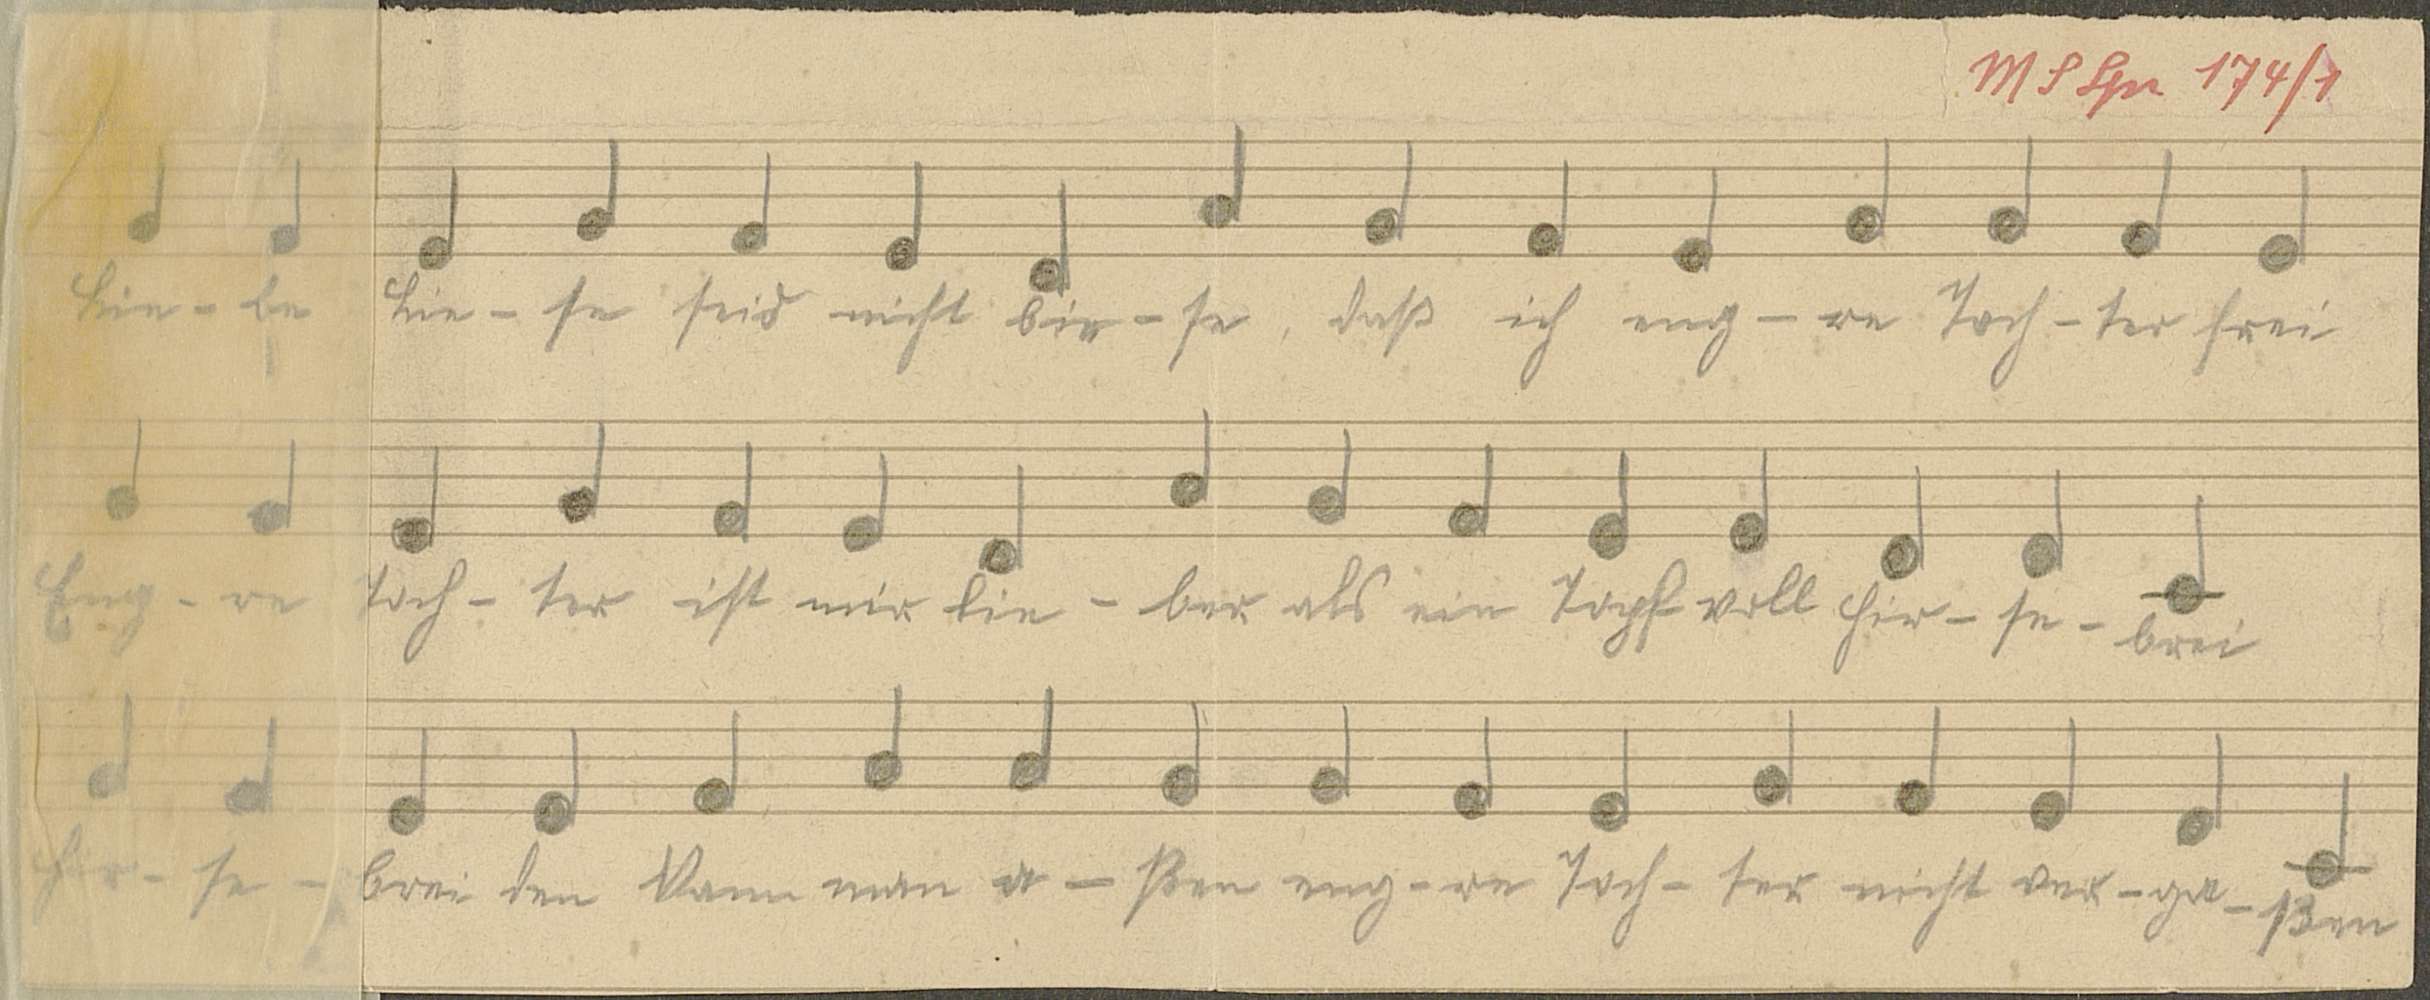 MS Spr 174/1
Lie - be Lie - se seid nicht bie - se, daß ich eng - re Toch - ter frei
Eng - re Toch - ter ist mir lie - ber als ein Topf voll Hir - se - brei
Hir - se - brei den kann man a - ßen eng - re Toch - ter nicht ver - ga - ßen